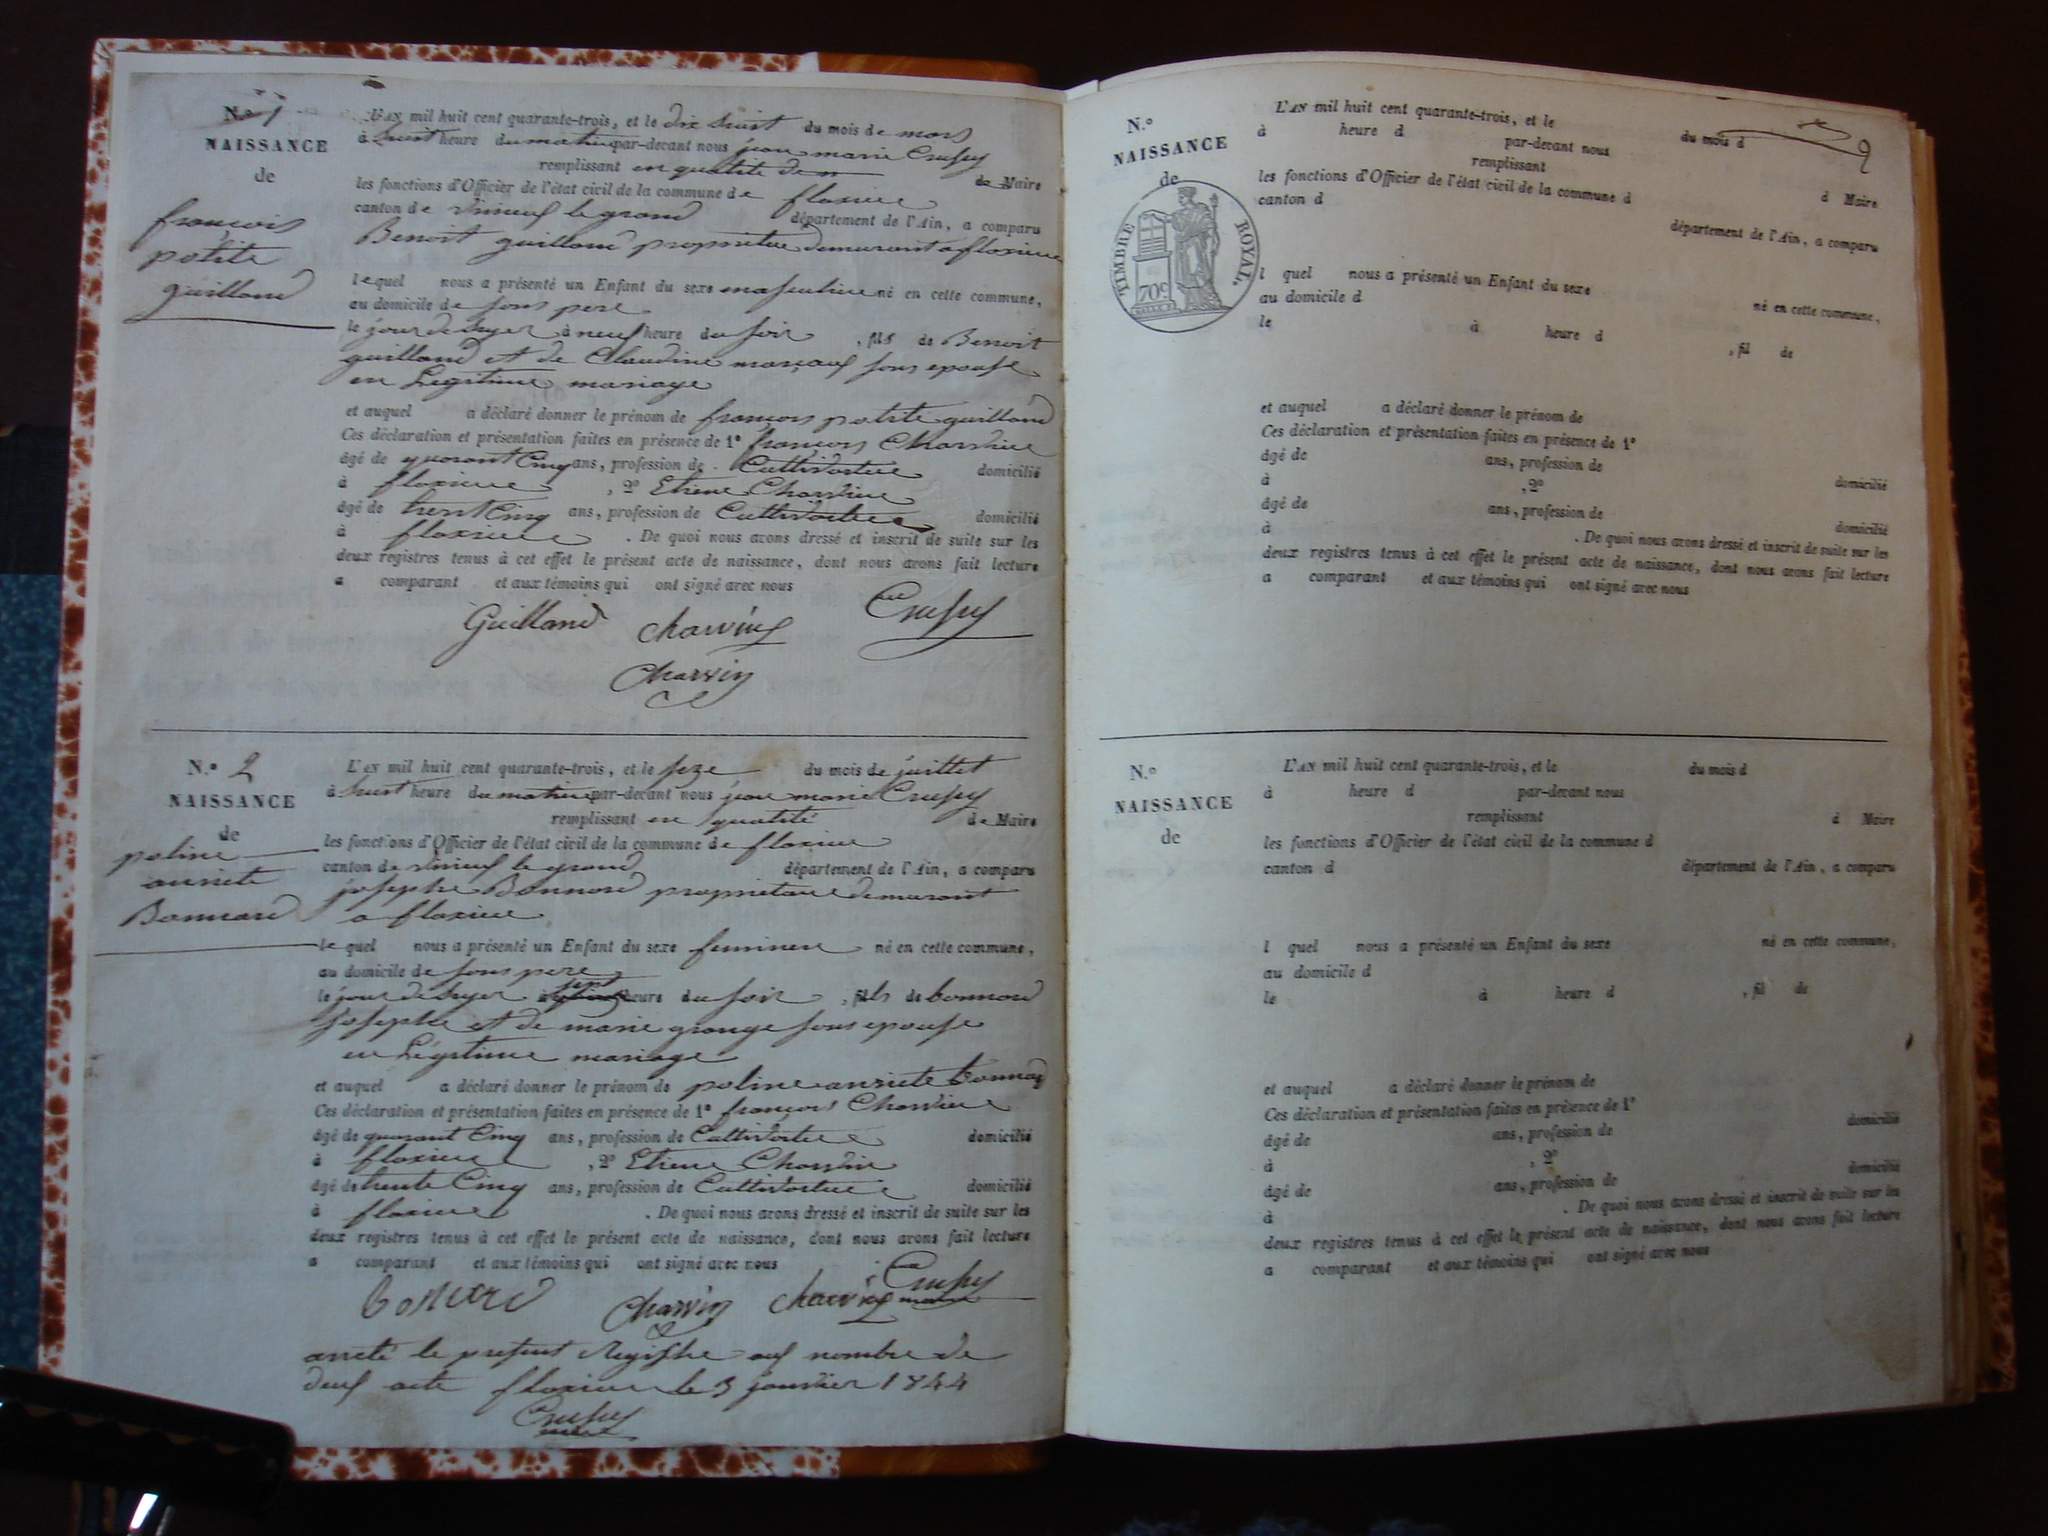 N.º 1
NAISSANCE
de
françois
polite
guilland
L'AN mil huit cent quarante-trois, et le dix huit du mois de mars
à huit heure du matin par-devant nous jean marie Crespy
remplissant en qualité de Maire
les fonctions d'Officier de l'état civil de la commune de flaxieu
canton de virieux le grand département de l'Ain, a comparu
Benoit guilland propriétaire demeurant a flaxieu
lequel nous a présenté un Enfant du sexe masculin né en cette commune,
au domicile de sons pere
le jour de hyer à neuf heure du soir , fils de Benoit
guilland et de Claudine sons epouse
en Legitime mariage
et auquel a déclaré donner le prénom de françois polite guilland
Ces déclaration et présentation faites en présence de 1º françois Charvin
âgé de quarant Cinq ans, profession de Cultivateur domicilié
à flaxieu , 2º Etiene Charvin
âgé de trent Cinq ans, profession de Cultivateur domicilié
à flaxieu . De quoi nous avons dressé et inscrit de suite sur les
deux registres tenus à cet effet le présent acte de naissance, dont nous avons fait lecture
a comparant et aux témoins qui ont signé avec nous
Guilland Charvin Crespy
Charvin
N.º 2
NAISSANCE
de
poline
anriete
Bonnard
L'AN mil huit cent quarante-trois, et le seze du mois de juillet
à huit heure du matin par-devant nous jean marie Crespy
remplissant en qualité de Maire
les fonctions d'Officier de l'état civil de la commune de flaxieu
canton de virieux le grand département de l'Ain, a comparu
josephe Bonnard propriétaire demeurant
a flaxieu
le quel nous a présenté un Enfant du sexe feminen né en cette commune,
au domicile de sons pere
le jour de hyer à sept heure du soir , fils de bonnard
josephe et de marie grange sons epouse
en Légitime mariage
et auquel a déclaré donner le prénom de poline anriete bonnard
Ces déclaration et présentation faites en présence de 1º françois Charvin
âgé de quarant Cinq ans, profession de Cultivateur domicilié
à flaxieu , 2º Etiene Charvin
âgé de trente Cinq ans, profession de Cultivateur domicilié
à flaxieu . De quoi nous avons dressé et inscrit de suite sur les
deux registres tenus à cet effet le présent acte de naissance, dont nous avons fait lecture
a comparant et aux témoins qui ont signé avec nous
bonnard Charvin Charvin Crespy
maire
arreté le présent Registre au nombre de
deux acte flaxieu le 3 janvier 1844
Crespy
maire
9
N.º
NAISSANCE
de
TIMBRE ROYAL.
70c
L'AN mil huit cent quarante-trois, et le du mois d
à heure d par-devant nous
remplissant d Maire
les fonctions d'Officier de l'état civil de la commune d
canton d département de l'Ain, a comparu
l quel nous a présenté un Enfant du sexe né en cette commune,
au domicile d
le à heure d , fil de
et auquel a déclaré donner le prénom de
Ces déclaration et présentation faites en présence de 1º
âgé de ans, profession de domicilié
à , 2º
âgé de ans, profession de domicilié
à . De quoi nous avons dressé et inscrit de suite sur les
deux registres tenus à cet effet le présent acte de naissance, dont nous avons fait lecture
a comparant et aux témoins qui ont signé avec nous
N.º
NAISSANCE
de
L'AN mil huit cent quarante-trois, et le du mois d
à heure d par-devant nous
remplissant d Maire
les fonctions d'Officier de l'état civil de la commune d
canton d département de l'Ain, a comparu
l quel nous a présenté un Enfant du sexe né en cette commune,
au domicile d
le à heure d , fil de
et auquel a déclaré donner le prénom de
Ces déclaration et présentation faites en présence de 1º
âgé de ans, profession de domicilié
à , 2º
âgé de ans, profession de domicilié
à . De quoi nous avons dressé et inscrit de suite sur les
deux registres tenus à cet effet le présent acte de naissance, dont nous avons fait lecture
a comparant et aux témoins qui ont signé avec nous